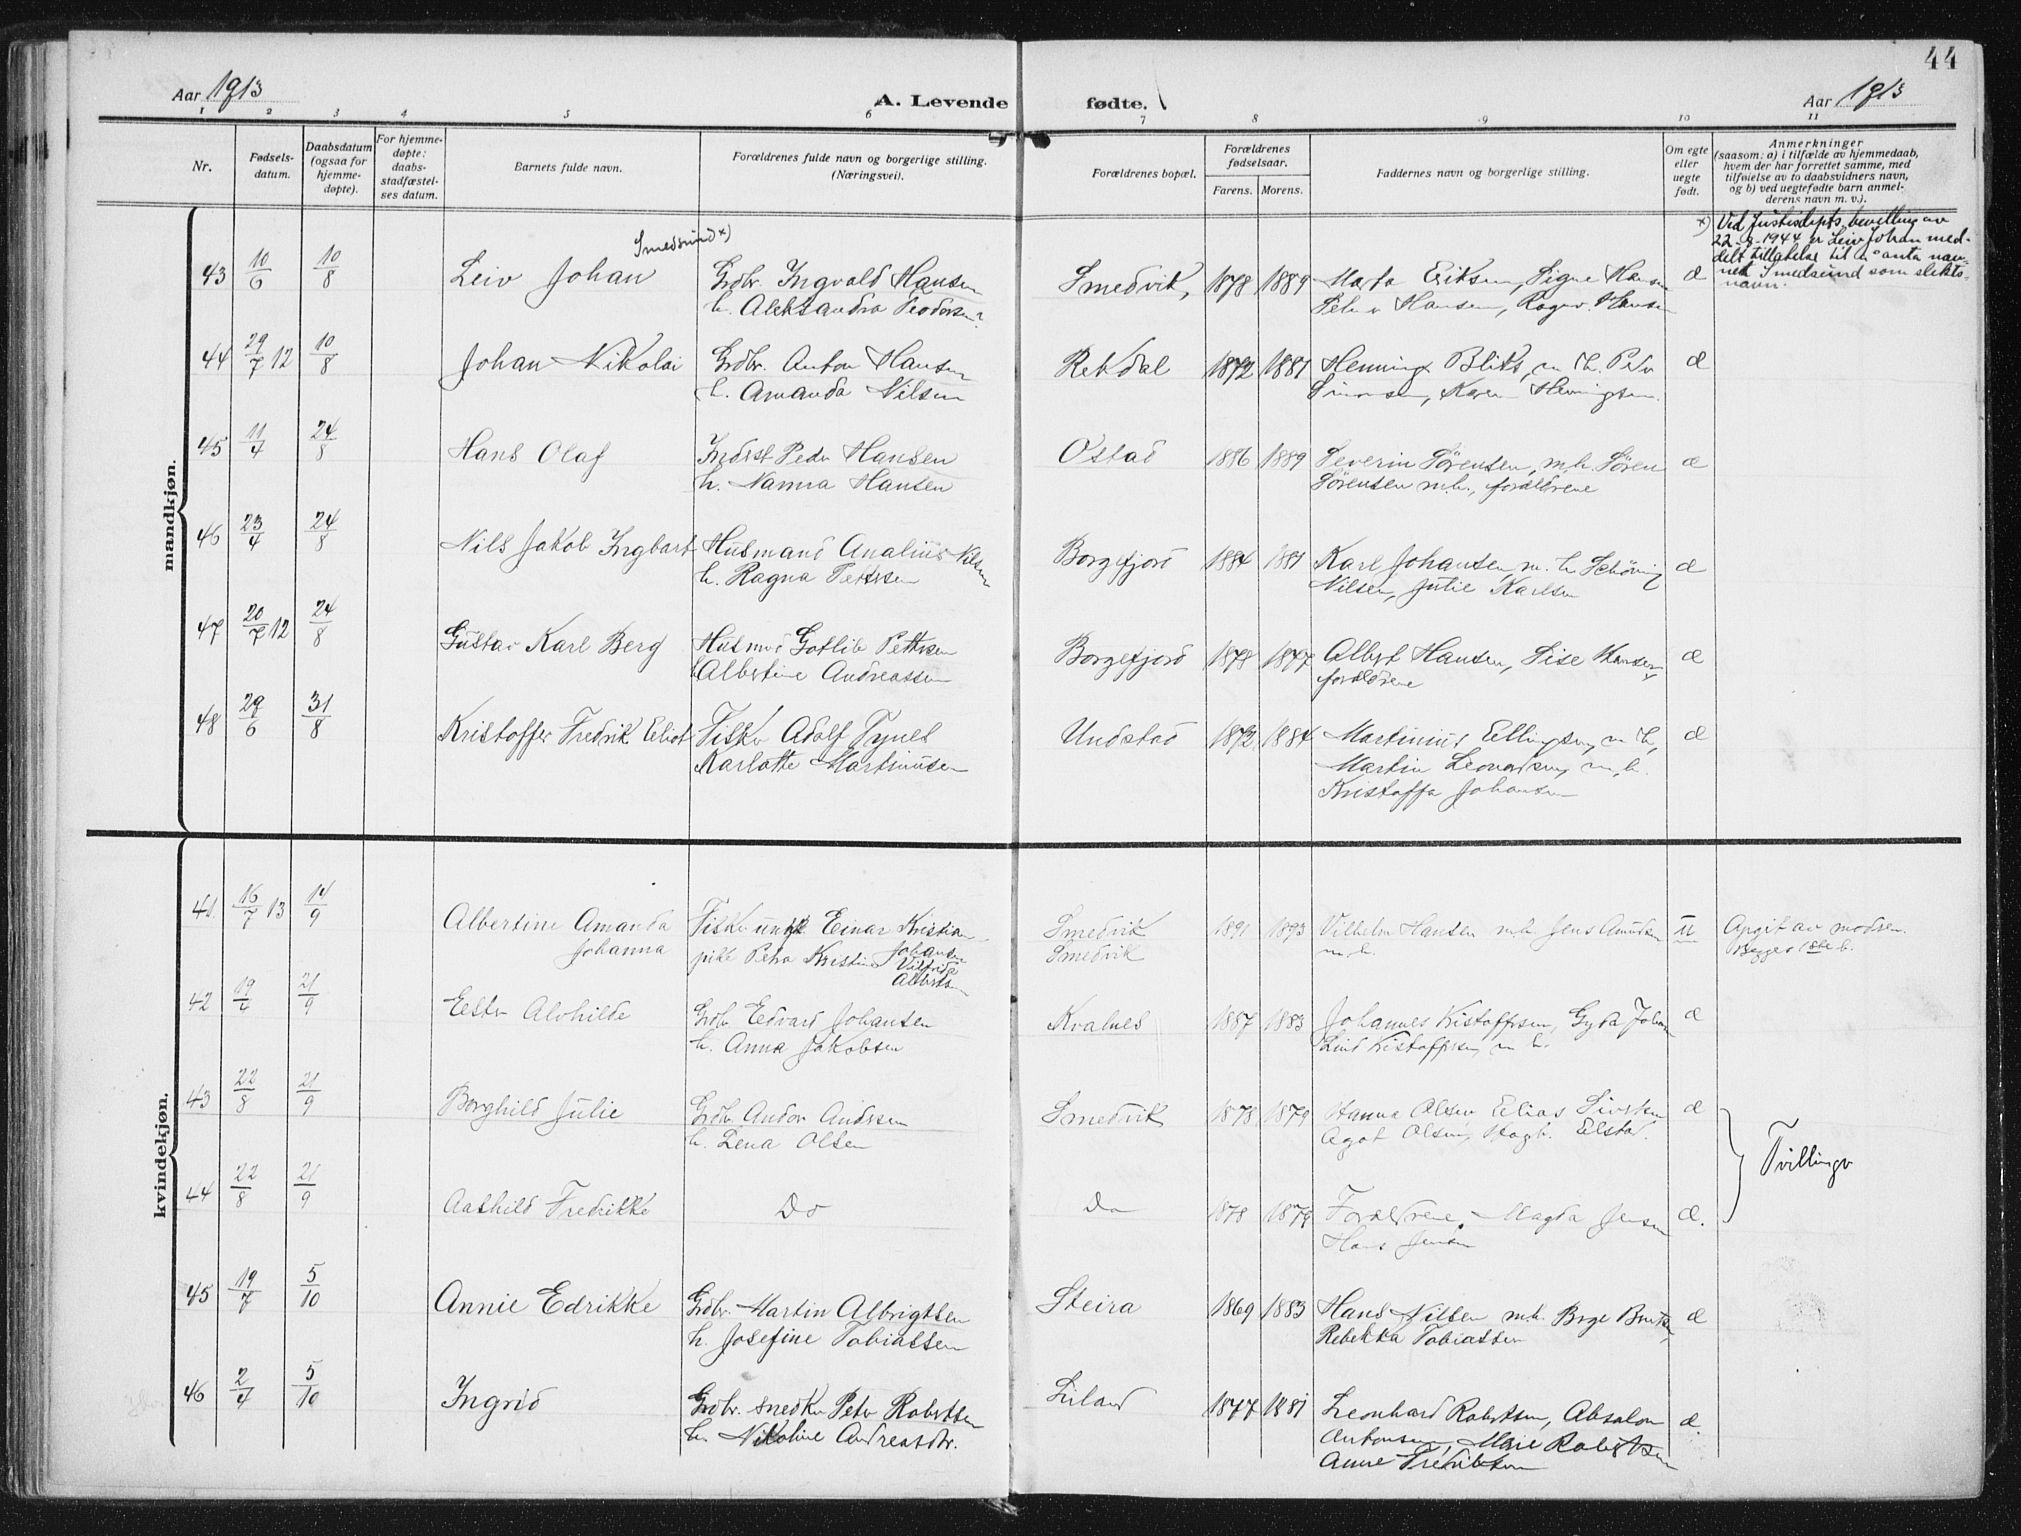 44
Aar 1913
A. Levende fødte.
Aar 1913
1 2 3 4 5 6 7 8 9 10 11
Nr.
Fødsels-
datum.
Daabsdatum
(ogsaa for
hjemme-
døpte).
For hjemme-
døpte:
daabs-
stadfæstel-
ses datum.
Barnets fulde navn.
Forældrenes fulde navn og borgerlige stilling.
(Næringsvei).
Forældrenes bopæl.
Forældrenes
fødselsaar.
Farens. Morens.
Faddernes navn og borgerlige stilling.
Om egte
eller
uegte
født.
Anmerkninger
(saasom: a) i tilfælde av hjemmedaab,
hvem der har forrettet samme, med
tilføielse av to daabsvidners navn,
og b) ved uegtefødte barn anmel-
derens navn m. v.).
mandkjøn.
Smedsund x)
43 10/6 10/8 Leiv Johan Grdbr. Ingvald Hansen Smedvik, 1878 1889 Marta Eriksen, Signe Hansen Æ
h. Aleksandra Teodorsen Hansen, Hansen
x) Ved Justisdepts. bevilling av
22-8-1944 er Leiv Johan med-
delt tillatelse til å anta nav-
net Smedsund som slekts-
navn.
44 29/7 12 10/8 Johan Nikolai Grdbr. Anton Hansen Rekdal 1872 1881 Henning Bliks, m. h. Peder Æ
h. Amanda Nilsen Simonsen, Karen Henningsen.
45 11/4 24/8 Hans Olaf Inderst Peder Hansen Ostad 1886 1889 Severin Sørensen, m. h. Søren Æ
h. Nanna Hansen Sørensen m. h., forældrene
46 23/4 24/8 Nils Jakob Ingbart Husmand Analius Nilsen Borgefjord 1884 1881 Karl Johansen, m. h. Æ
h. Ragna Pettersen Nilsen, Julie Karlsen
47 20/7 12 24/8 Gustav Karl Berg Husmd Gotlib Pettersen Borgefjord 1878 1877 Albert Hansen, Sise Hansen, Æ
h. Albertine Andreassen forældrene
48 29/6 31/8 Kristoffer Fredrik Eliot Fisker Adolf Tynes Undstad 1872 1884 Martinius Ellingsen, m. h, Æ
Karlotte Martinusen Martin Leonardsen, m. h.
Kristoffer Johansen
kvindekjøn.
41. 16/7 13 14/9 Albertine Amanda Fisker ungk. Einar Kristian Smedvik 1891 1893 Vilhelm Hansen m. h. Jens Amundsen U Opgit av modren.
Johanna Johansen pike Petra Kristine Vilfrida Albertsen Smedvik m. h. Begges 1ste b.
42 19/4 21/9 Ester Alvhilde Grdbr. Edvard Johansen Kvalnes 1887 1883 Johannes Kristoffersen, Gyda Johan Æ
h. Anna Jakobsen Kristoffersen, m. h.
43 22/8 21/9 Borghild Julie Grdbr. Andor Andersen Smedvik 1878 1879 Hanna Olsen Elias Sivertsen Æ
h. Lena Olsen Agot Olsen, Hagb. Elstad.
Tvillinger
44 22/8 21/9 Aashild Fredrikke Do Do 1878 1879 Forældrene, Magda Jensen Æ.
Hans Jensen
45 19/7 5/10 Annie Edrikke Grdbr. Martin Albrigtsen Steira 1869 1883 Hans Nilsen m. h. Berntsen, Æ
h. Josefine Tobiassen Rebekka Tobiassen
46 2/4 5/10 Ingrid Grdbr. snedker Peter Robertsen Liland 1877 1881 Leonhard Robertsen, Absalon Æ.
h. Nikoline Andreasdtr. Antonsen, Marie Robertsen
Anne Fredriksen